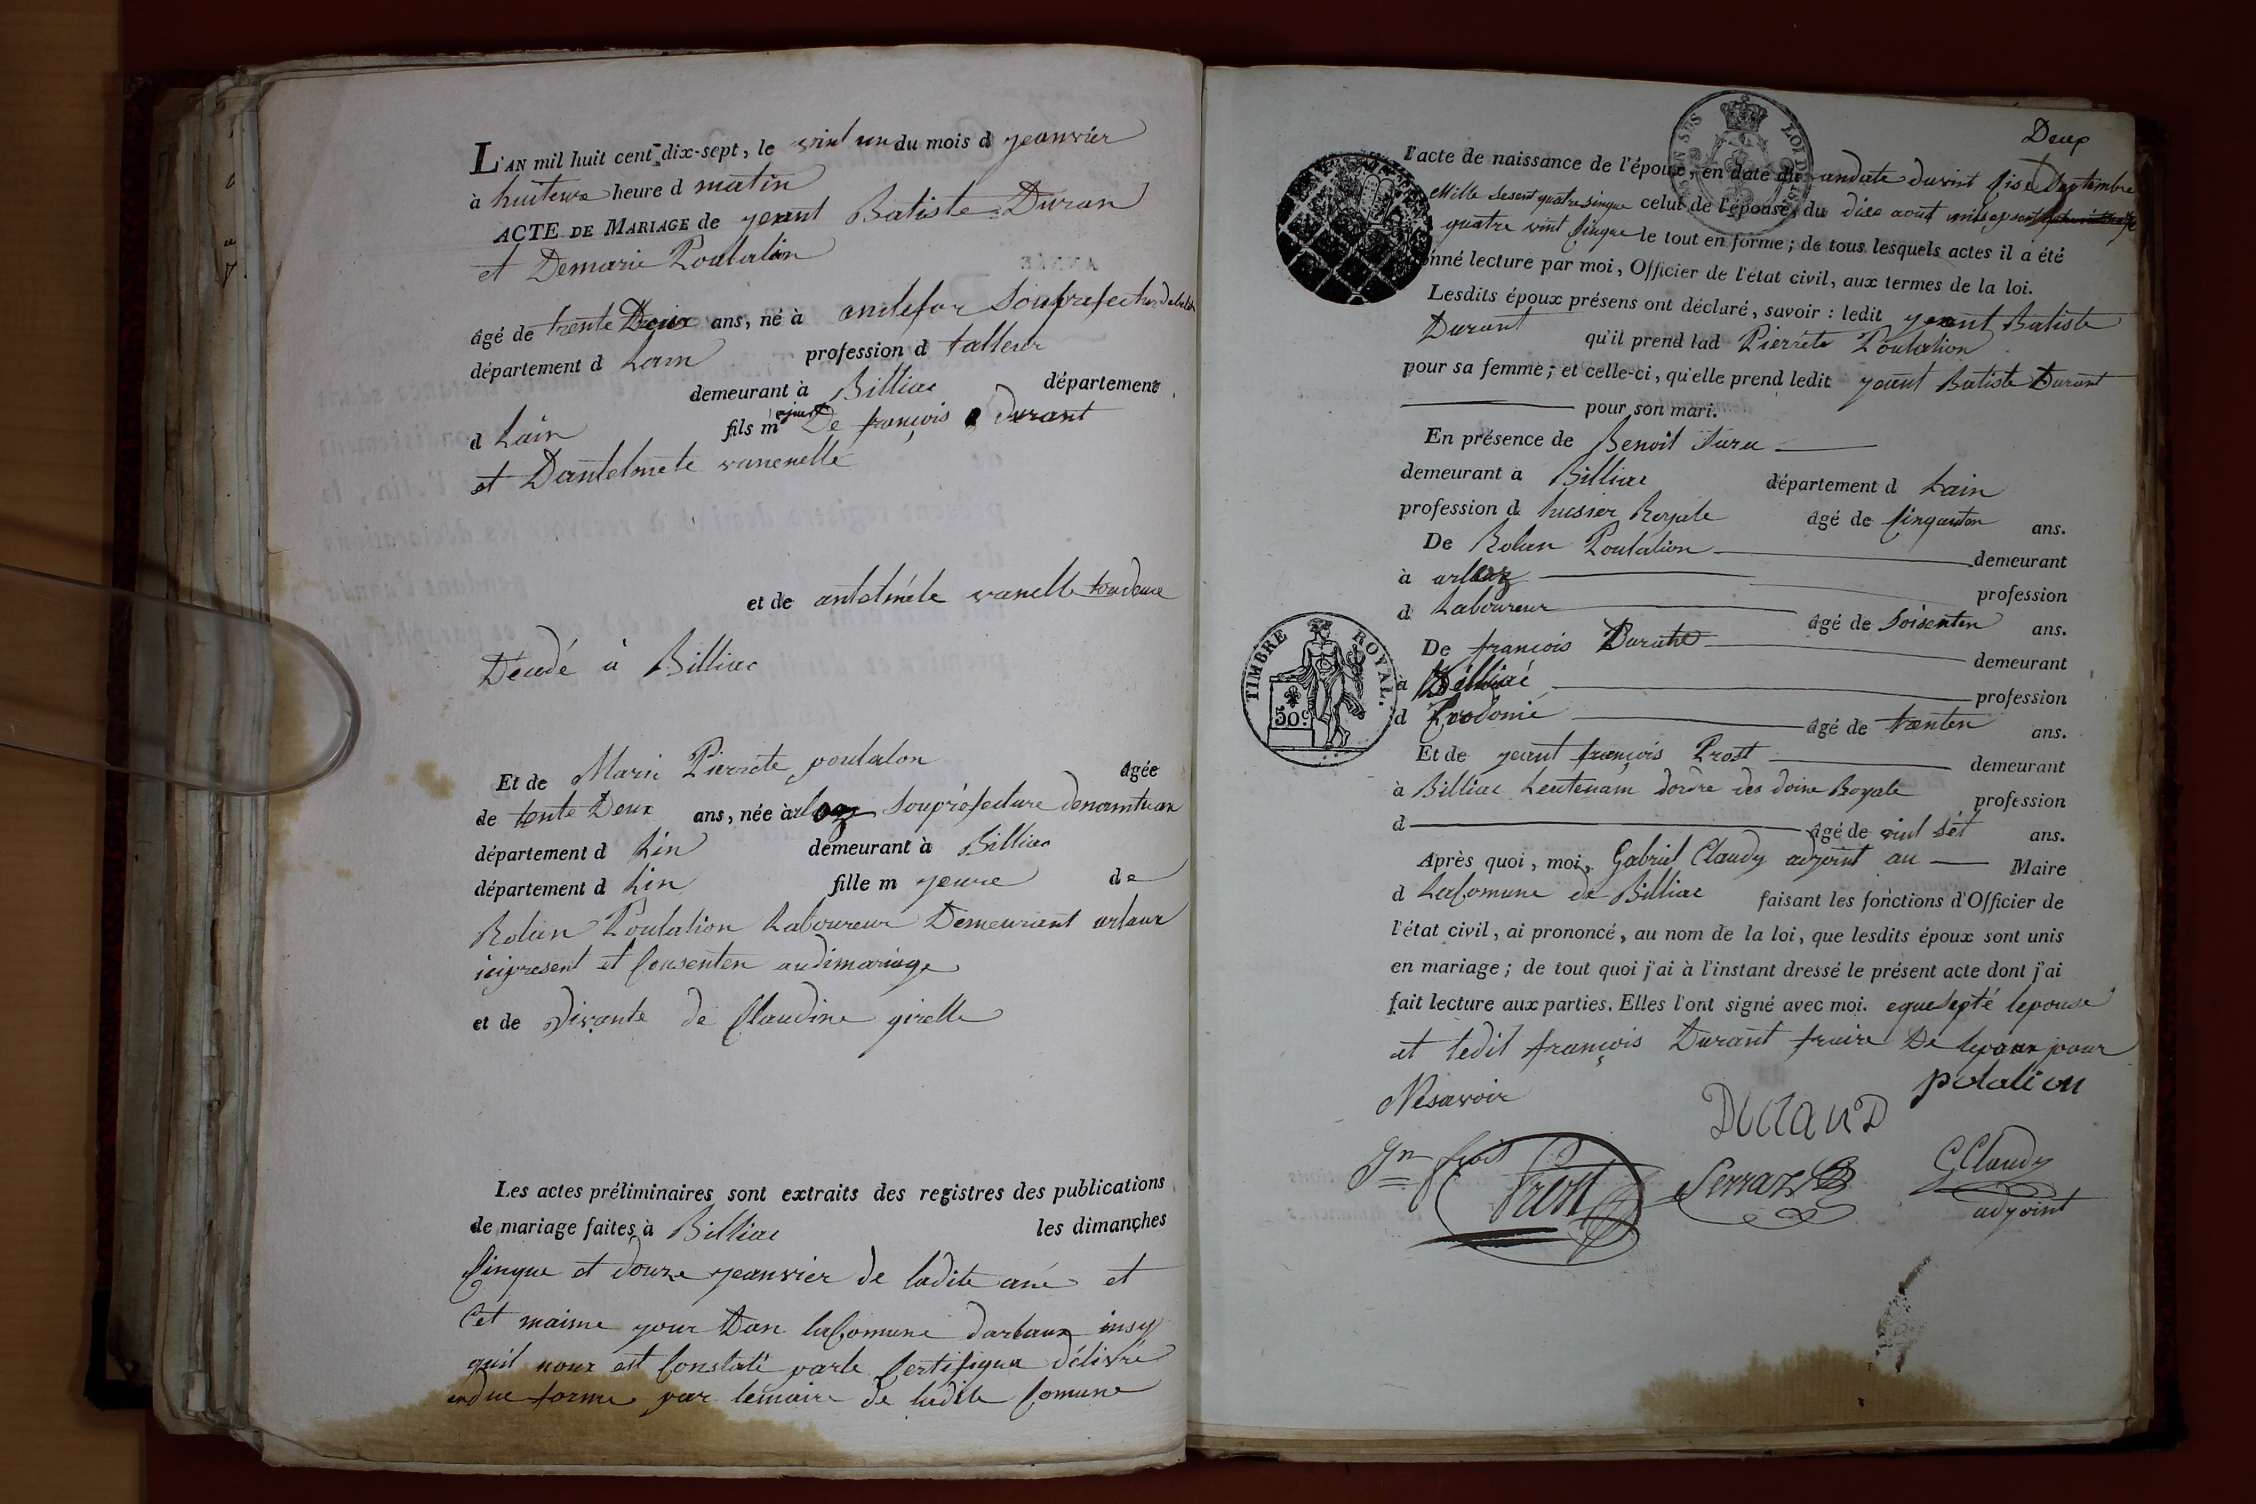 L'AN mil huit cent dix-sept, le vint un du mois d jeanvier
à huiteure heure d matin
ACTE DE MARIAGE de jeant Batiste Duran
et Demarie Poulalion
âgé de trente Deux ans, né à andefor Souprefecture
département d Lain profession d talleur
demeurant à Billiac département
d Lain fils majeur De françois Durant
et Dantelmete vanenelle
et de antelméte vanelle
Décédé à Billiac
Et de Marie Pierrete poulalon âgée
de tente Deux ans, née à Souprefecture denamtuan
département d Lin demeurant à Billiac
département d Lin fille m jeure de
Rolan Poulalion Laboureur Demeurant arlaux
icipresent et Consenten audimariage
et de Divante de Claudine girelle
Les actes préliminaires sont extraits des registres des publications
de mariage faites à Billiac les dimanches
Cinque et douze jeanvier de ladite ané et
Cet maime jour Dan laComune darlaux insy
quil nour est Constaté parle Certifiqua délivré
endue forme par lemaire de ladite Comune
Deux
l'acte de naissance de l'époux, en date du andate duvint Sise Septembre
Mille Sesent quatresinque celui de l'épouse, du dise aout
quatre vint Cinque le tout en forme; de tous lesquels actes il a été
nné lecture par moi, Officier de l'état civil, aux termes de la loi.
Lesdits époux présens ont déclaré, savoir : ledit jeant Batiste
Durant qu'il prend lad Pierrete Poulalion
pour sa femme; et celle-ci, qu'elle prend ledit jeant Batiste Durant
pour son mari.
En présence de Benoit
demeurant à Billiac département d Lain
profession d husier Royale âgé de Sinquanten ans.
De Rolan Poulalion demeurant
à arlaoz profession
d Laboureur âgé de Soisenten ans.
De françois demeurant
à Billiac profession
d Cordonié âgé de trenten ans.
Et de jeant françois Prost demeurant
à Billiac Leutenam dordre des doine Royale profession
d âgé de vint sét ans.
Après quoi, moi, Gabriel Claudy adjoint au Maire
d LaComune de Billiac faisant les fonctions d'Officier de
l'état civil, ai prononcé, au nom de la loi, que lesdits époux sont unis
en mariage; de tout quoi j'ai à l'instant dressé le présent acte dont j'ai
fait lecture aux parties. Elles l'ont signé avec moi. equesepté lepouse
et ledit françois Durant fraire De lepoux pour
Nesavoir
potalion
DuraND
Jn fcois Prost
Serraz
G Claudy
adjoint
TIMBRE ROYAL.
50c